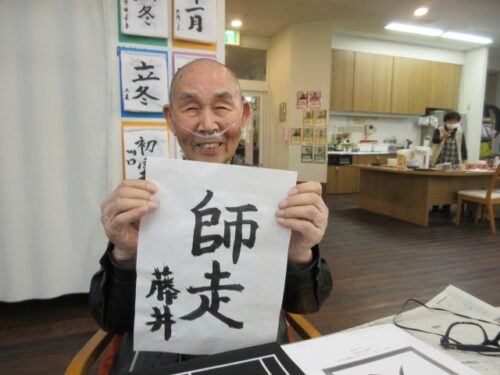 師走
藤井
立冬
立冬
十一月
初